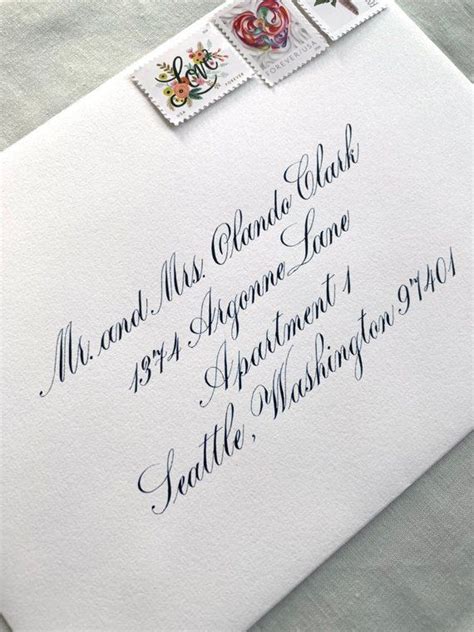 Love
FOREVER
FOREVER/USA
Mr. and Mrs. Olando Clark
1374 Argonne Lane
Apartment 1
Seattle, Washington 97401